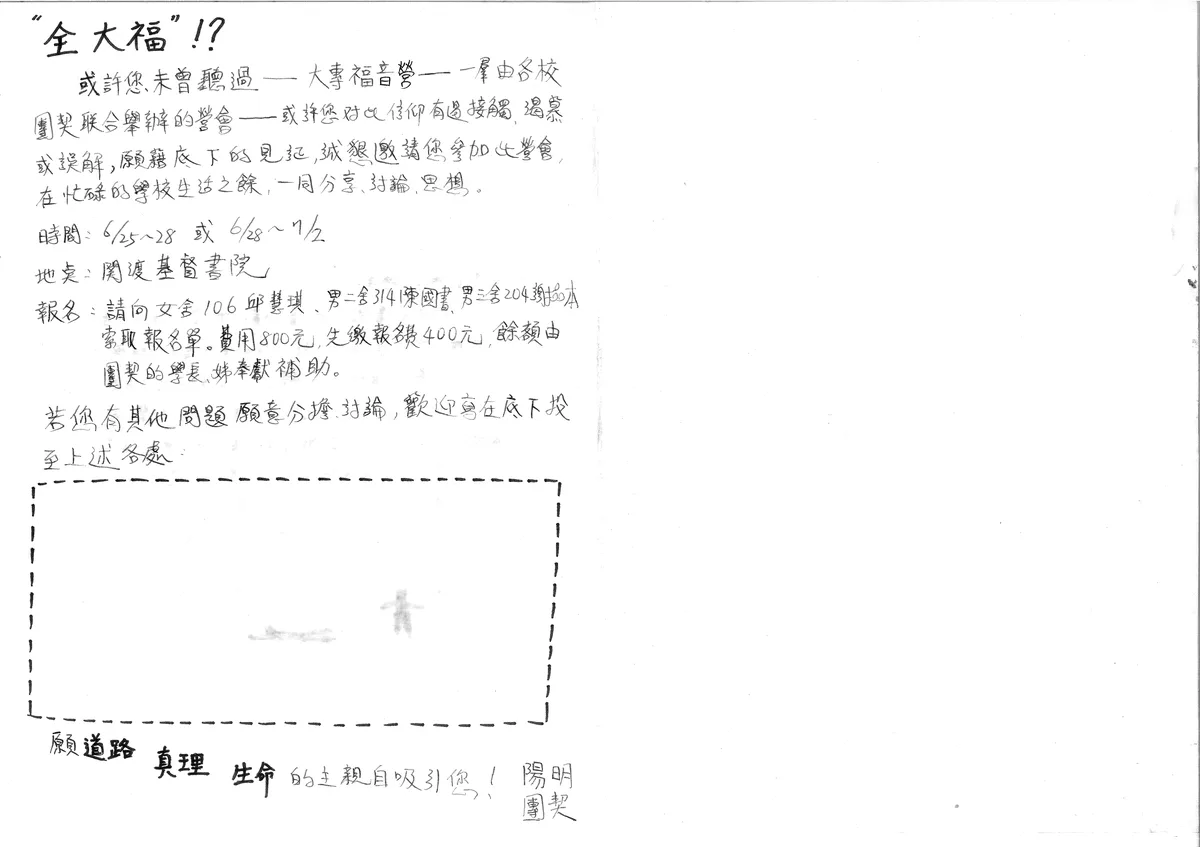 “全大福”!?
或許您未曾聽過——大專福音營——一羣由各校
團契联合舉辦的營會——或許您对此信仰有過接觸、渴慕
或誤解，願藉底下的見証，誠懇邀請您參加此營會，
在忙碌的學校生活之餘，一同分享、討論、思想。
時間：6/25～28 或 6/28～7/2
地奌：関渡基督書院
報名：請向女舍106邱慧琪、男二舍314陳國書、男三舍204謝本
索取報名單。費用800元，先繳報名費400元，餘額由
團契的學長、姊奉獻補助。
若您有其他問題願意分擔、討論，歡迎寫在底下投
至上述各處.
願道路 真理 生命的主親自吸引您！ 陽明
團契